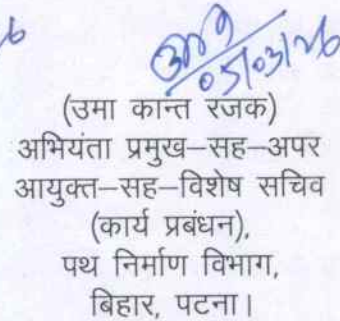 05/03/26
(उमा कान्त रजक)
अभियंता प्रमुख–सह–अपर
आयुक्त–सह–विशेष सचिव
(कार्य प्रबंधन),
पथ निर्माण विभाग,
बिहार, पटना।